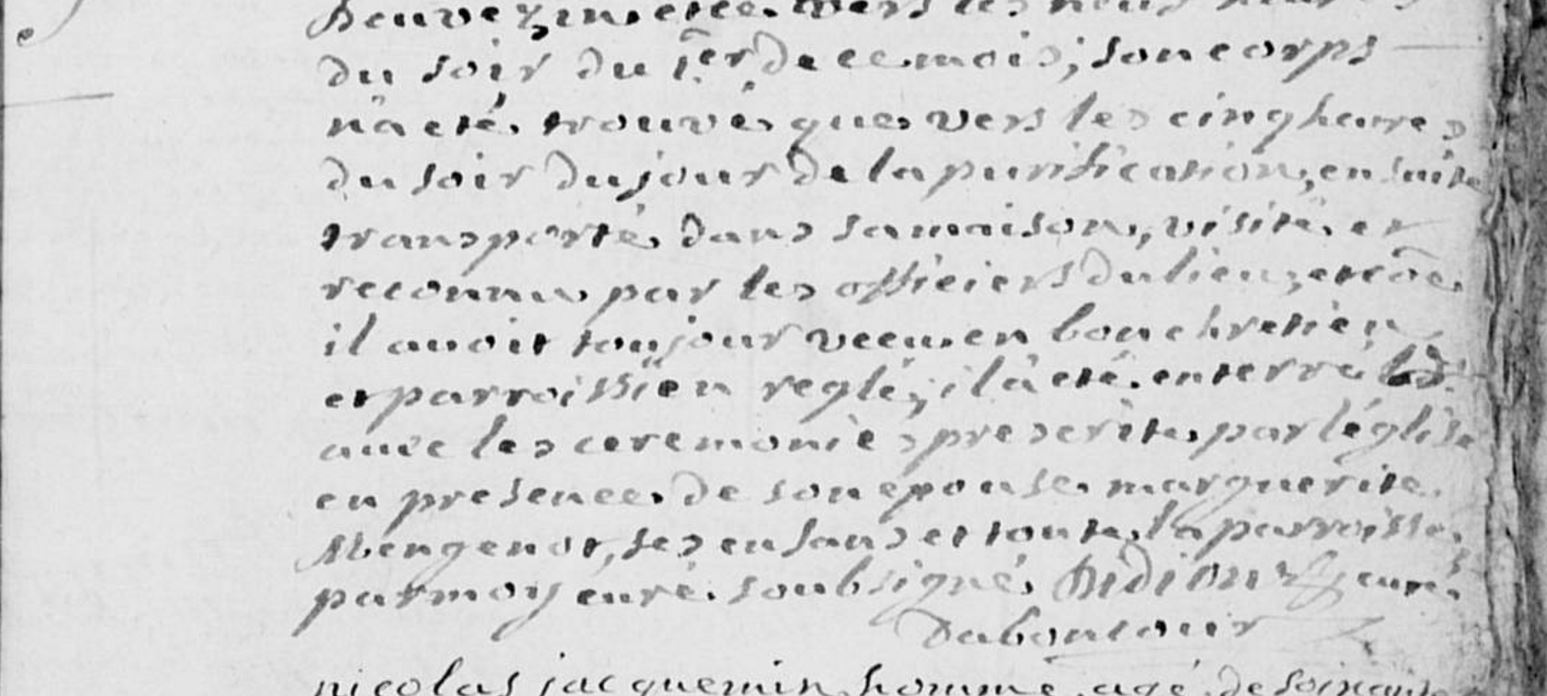 vers les neuf heures
du soir du 1er de ce mois; son corps
n'a eté trouvé que vers les cinq heures
du soir du jour de la purification, ensuite
transporté dans sa maison, visité et
reconnu par les officiers du lieu, et coe
il avoit toujour vecu en bon chretien
et parroissien reglé; il a eté enterré
avec les ceremonies prescrite par l'église
en presence de son epouse marguerite
Mengenot, ses enfans et toute la parroisse
par moy curé soubsigné curé
Daboncour
nicolas jacquemin homme agé de soixante